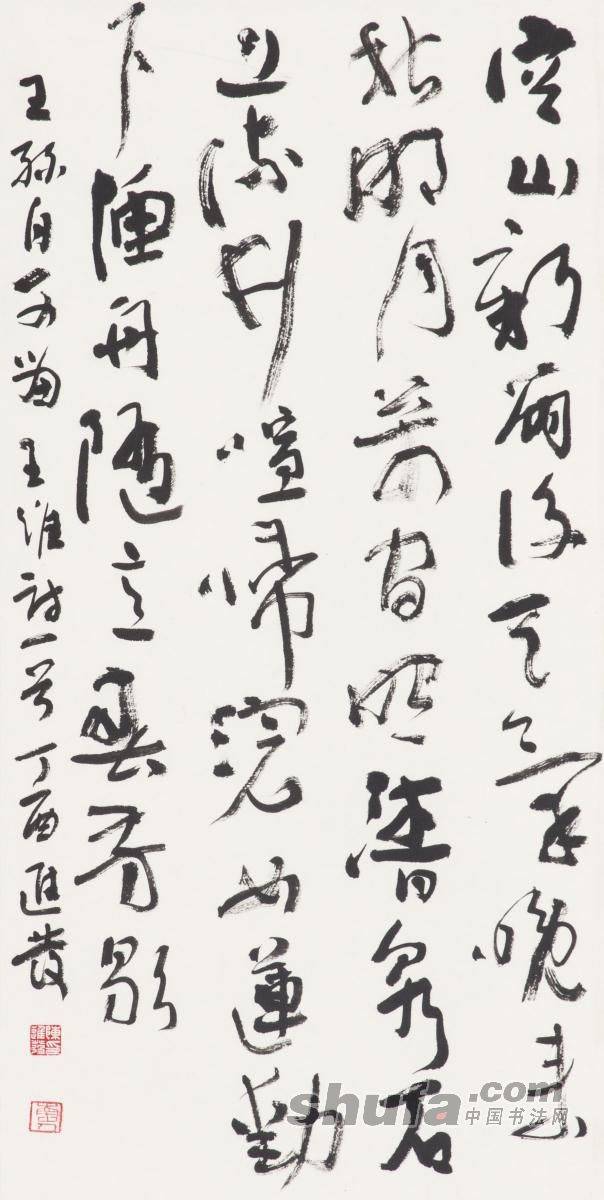 空山新雨後天氣晚来
秋明月松间照清泉石
上流竹喧歸浣女蓮動
下漁舟隨意春芳歇
王孫自可留王維詩一首丁酉進發
shufa.com
中国书法网